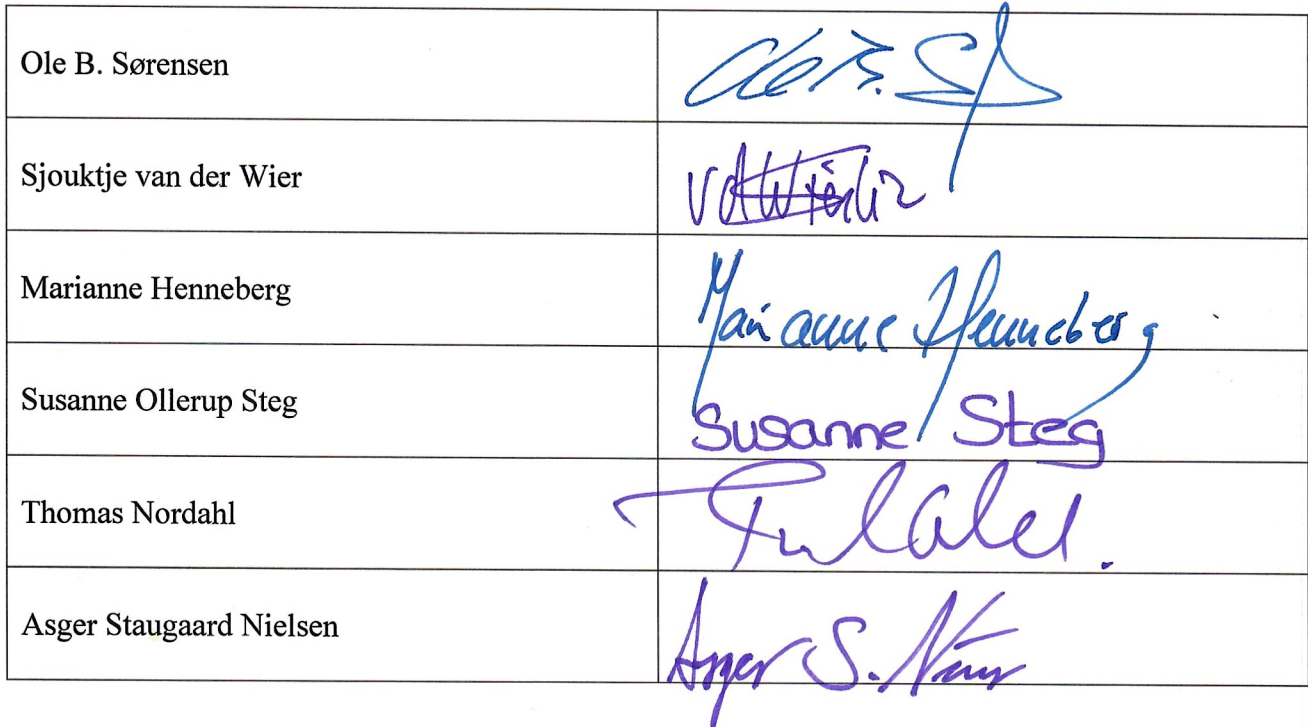 Ole B. Sørensen
Ole B. S
Sjouktje van der Wier
Marianne Henneberg
Marianne Henneberg
Susanne Ollerup Steg
Susanne Steg
Thomas Nordahl
Asger Staugaard Nielsen
Asger S.